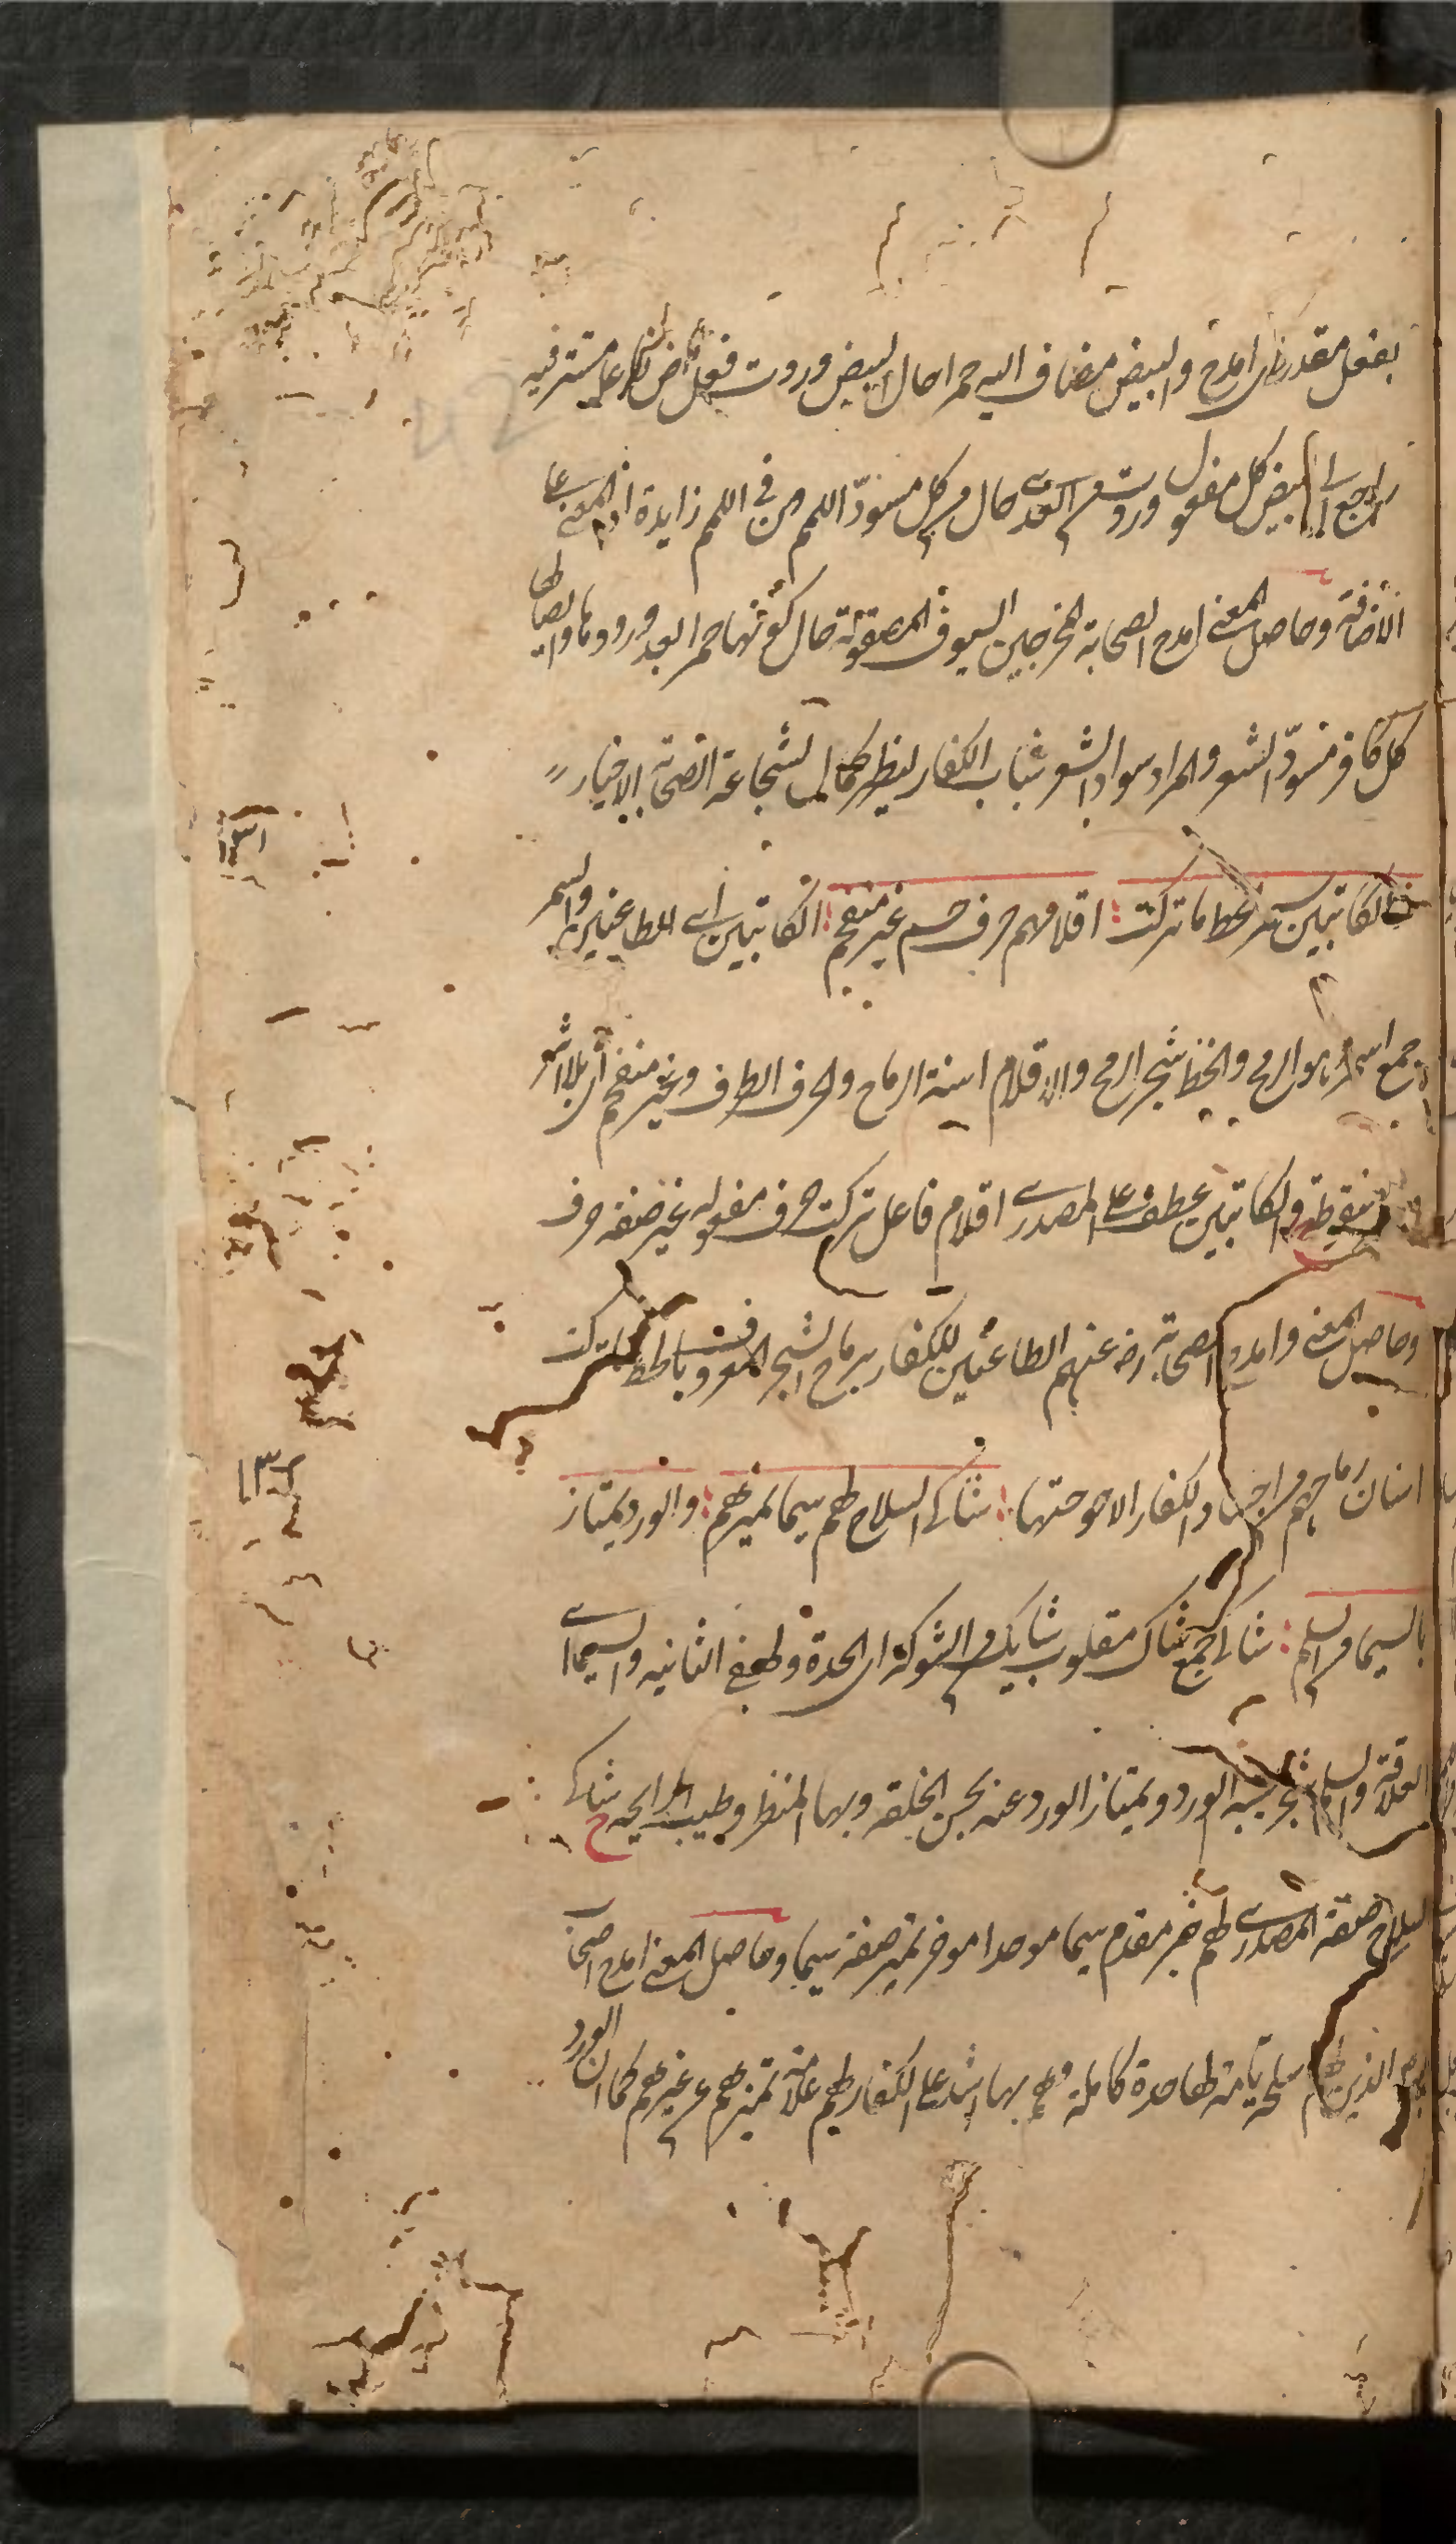 بفعل مقدر اى امدح والبيض مضاف اليه حمرا حال البيض وردت فعل ماض فاعله مستتر فيه
راجع الى البيض كل مفعول وردت من العدى حال من كل مسودّ اللمم من فى اللمم زايدة اذ المعنى على
الاضافة وحاصل المعنى امدح الصحابة المخرجين السيوف المصقولة حال كونها حمرا بعد ورودها وايصالها
كل كافر مسودّ الشعر والمراد سواد الشعر شباب الكفار ليظهر كمال شجاعة الصحابة الاخيار
والكاتبين بسمر الخط ما تركت اقلامهم حرف جسم غير منعجم الكاتبين اى الطاعنين والسمر
جمع اسمر هو الرمح والخط شجر الرمح والاقلام اسنة الرماح والحرف الطرف وغير منعجم اى بلا اثر
نقطة والكاتبين عطف على المصدرى اقلام فاعل تركت حرف مفعوله غير صفة حرف
وحاصل المعنى وامدح الصحابة رضى عنهم الطاعنين للكفار برماح الشجر المعروف بالخط ما تركت
اسنان رماحهم من اجساد الكفار الا جرحتها شاكى السلاح لهم سيما تميزهم والورد يمتاز
بالسيما من السلم شاكى جمع شاك مقلوب شايك من الشوكة اى الحدة ولهم فى الثانيه والسيما
العلامة والسلم شجر يشبه الورد ويمتاز الورد عنه بحسن الخلقة وبهاء المنظر وطيب الرايحه شاكى
السلاح صفة المصدرى لهم خبر مقدم سيما موخر تميز صفة سيما وحاصل المعنى امدح اصحاب
الذين لهم اسلحة تامة لها حدة كاملة وهم بها اشد على الكفار لهم علامة تميزهم عن غيرهم كما ان الورد